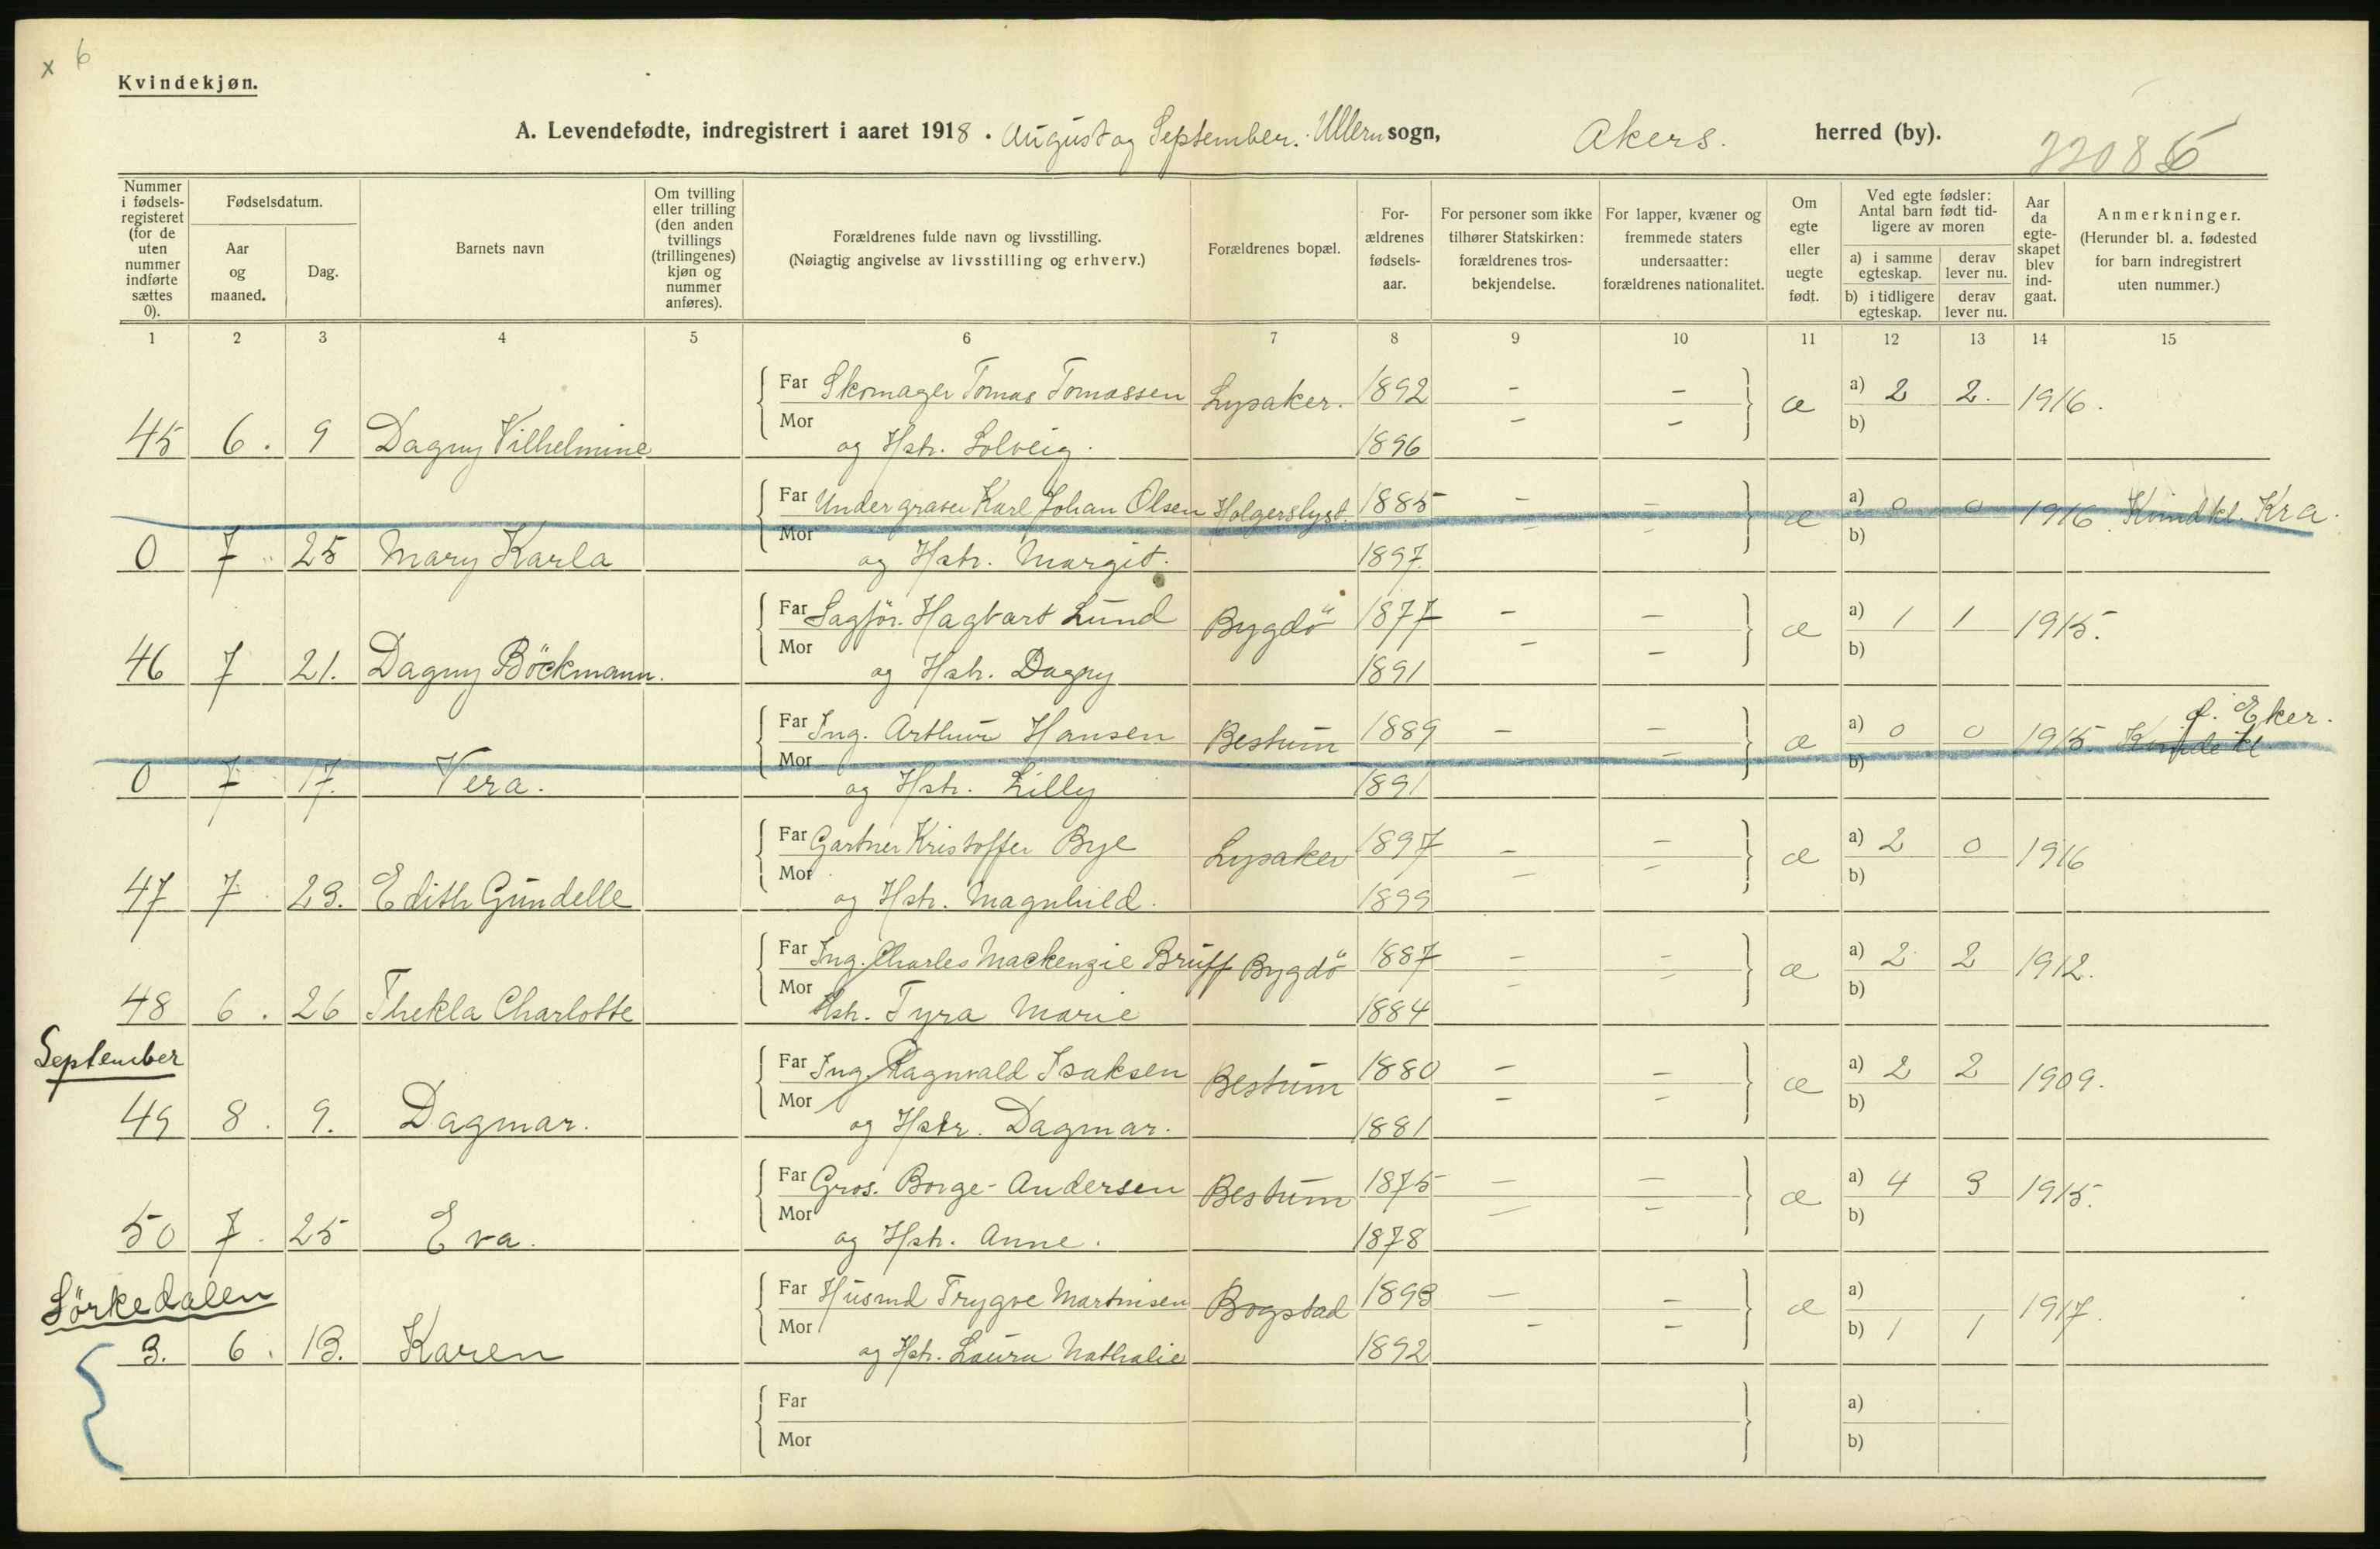 x 6
Kvindekjøn.
A. Levendefødte, indregistrert i aaret 1918. August og September. Ullern sogn, Akers. herred (by).
Nummer i fødsels-registeret (for de uten nummer indførte sættes 0).
Fødselsdatum.
Aar og maaned.
Dag.
Barnets navn
Om tvilling eller trilling (den anden tvillings (trillingenes) kjøn og nummer anføres).
Forældrenes fulde navn og livsstilling. (Nøiagtig angivelse av livsstilling og erhverv.)
Forældrenes bopæl.
For-ældrenes fødsels-aar.
For personer som ikke tilhører Statskirken: forældrenes tros-bekjendelse.
For lapper, kvæner og fremmede staters undersaatter: forældrenes nationalitet.
Om egte eller uegte født.
Ved egte fødsler: Antal barn født tid-ligere av moren
a) i samme egteskap. derav lever nu.
b) i tidligere egteskap. derav lever nu.
Aar da egte-skapet blev ind-gaat.
Anmerkninger. (Herunder bl. a. fødested for barn indregistrert uten nummer.)
1 2 3 4 5 6 7 8 9 10 11 12 13 14 15
Far Skomager Tomas Tomassen Lysaker. 1892 - - æ a) 2 2. 1916.
45 6. 9 Dagny Vilhelmine Mor og Hstr. Solveig. 1896 - - b)
Far Undergraver Karl Johan Olsen Holgerslyst. 1885 - - æ a) 0 0 1916 Kvindkl. Kra.
0 7 25 Mary Karla Mor og Hstr. Margit. 1897. - - b)
Far Sagför. Hagbart Lund Bygdö 1877 - - æ a) 1 1 1915.
46 7 21. Dagny Böckmann. Mor og Hstr. Dagny 1891 - - b)
Far Ing. Arthur Hansen Bestum 1889 - - æ a) 0 0 1915 Kvinde kl f. Eker.
0 7 17. Vera. Mor og Hstr. Lilly 1891 - b)
Far Gartner Kristoffer Bye Lysaker 1897 - - æ a) 2 0 1916
47 7 23. Edith Gundelle Mor og Hstr. Magnhild. 1899 - - b)
Far Ing. Charles Mackenzie Bruff Bygdö 1887 - - æ a) 2 2 1912.
48 6. 26 Thekla Charlotte Mor Hstr. Tyra Marie 1884 - - b)
September
Far Ing. Ragnvald Isaksen Bestum 1880 - - æ a) 2 2 1909.
49 8. 9. Dagmar. Mor og Hstr. Dagmar. 1881 - - b)
Far Gros. Borge-Andersen Bestum 1875 - - æ a) 4 3 1915.
50 7. 25 Eva. Mor og Hstr. Anne. 1878 - - b)
Sörkedalen
Far Husmd Trygve Martinsen Bogstad 1893 - - æ a) 1917.
3. 6. 13. Karen Mor og Hstr. Laura Nathalie 1892 - - b) 1 1
Far a)
Mor b)